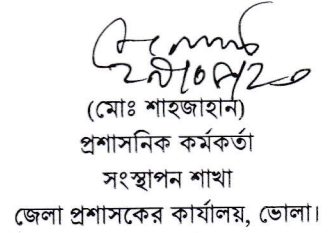 (মোঃ শাহজাহান)
প্রশাসনিক কর্মকর্তা
সংস্থাপন শাখা
জেলা প্রশাসকের কার্যালয়, ভোলা।